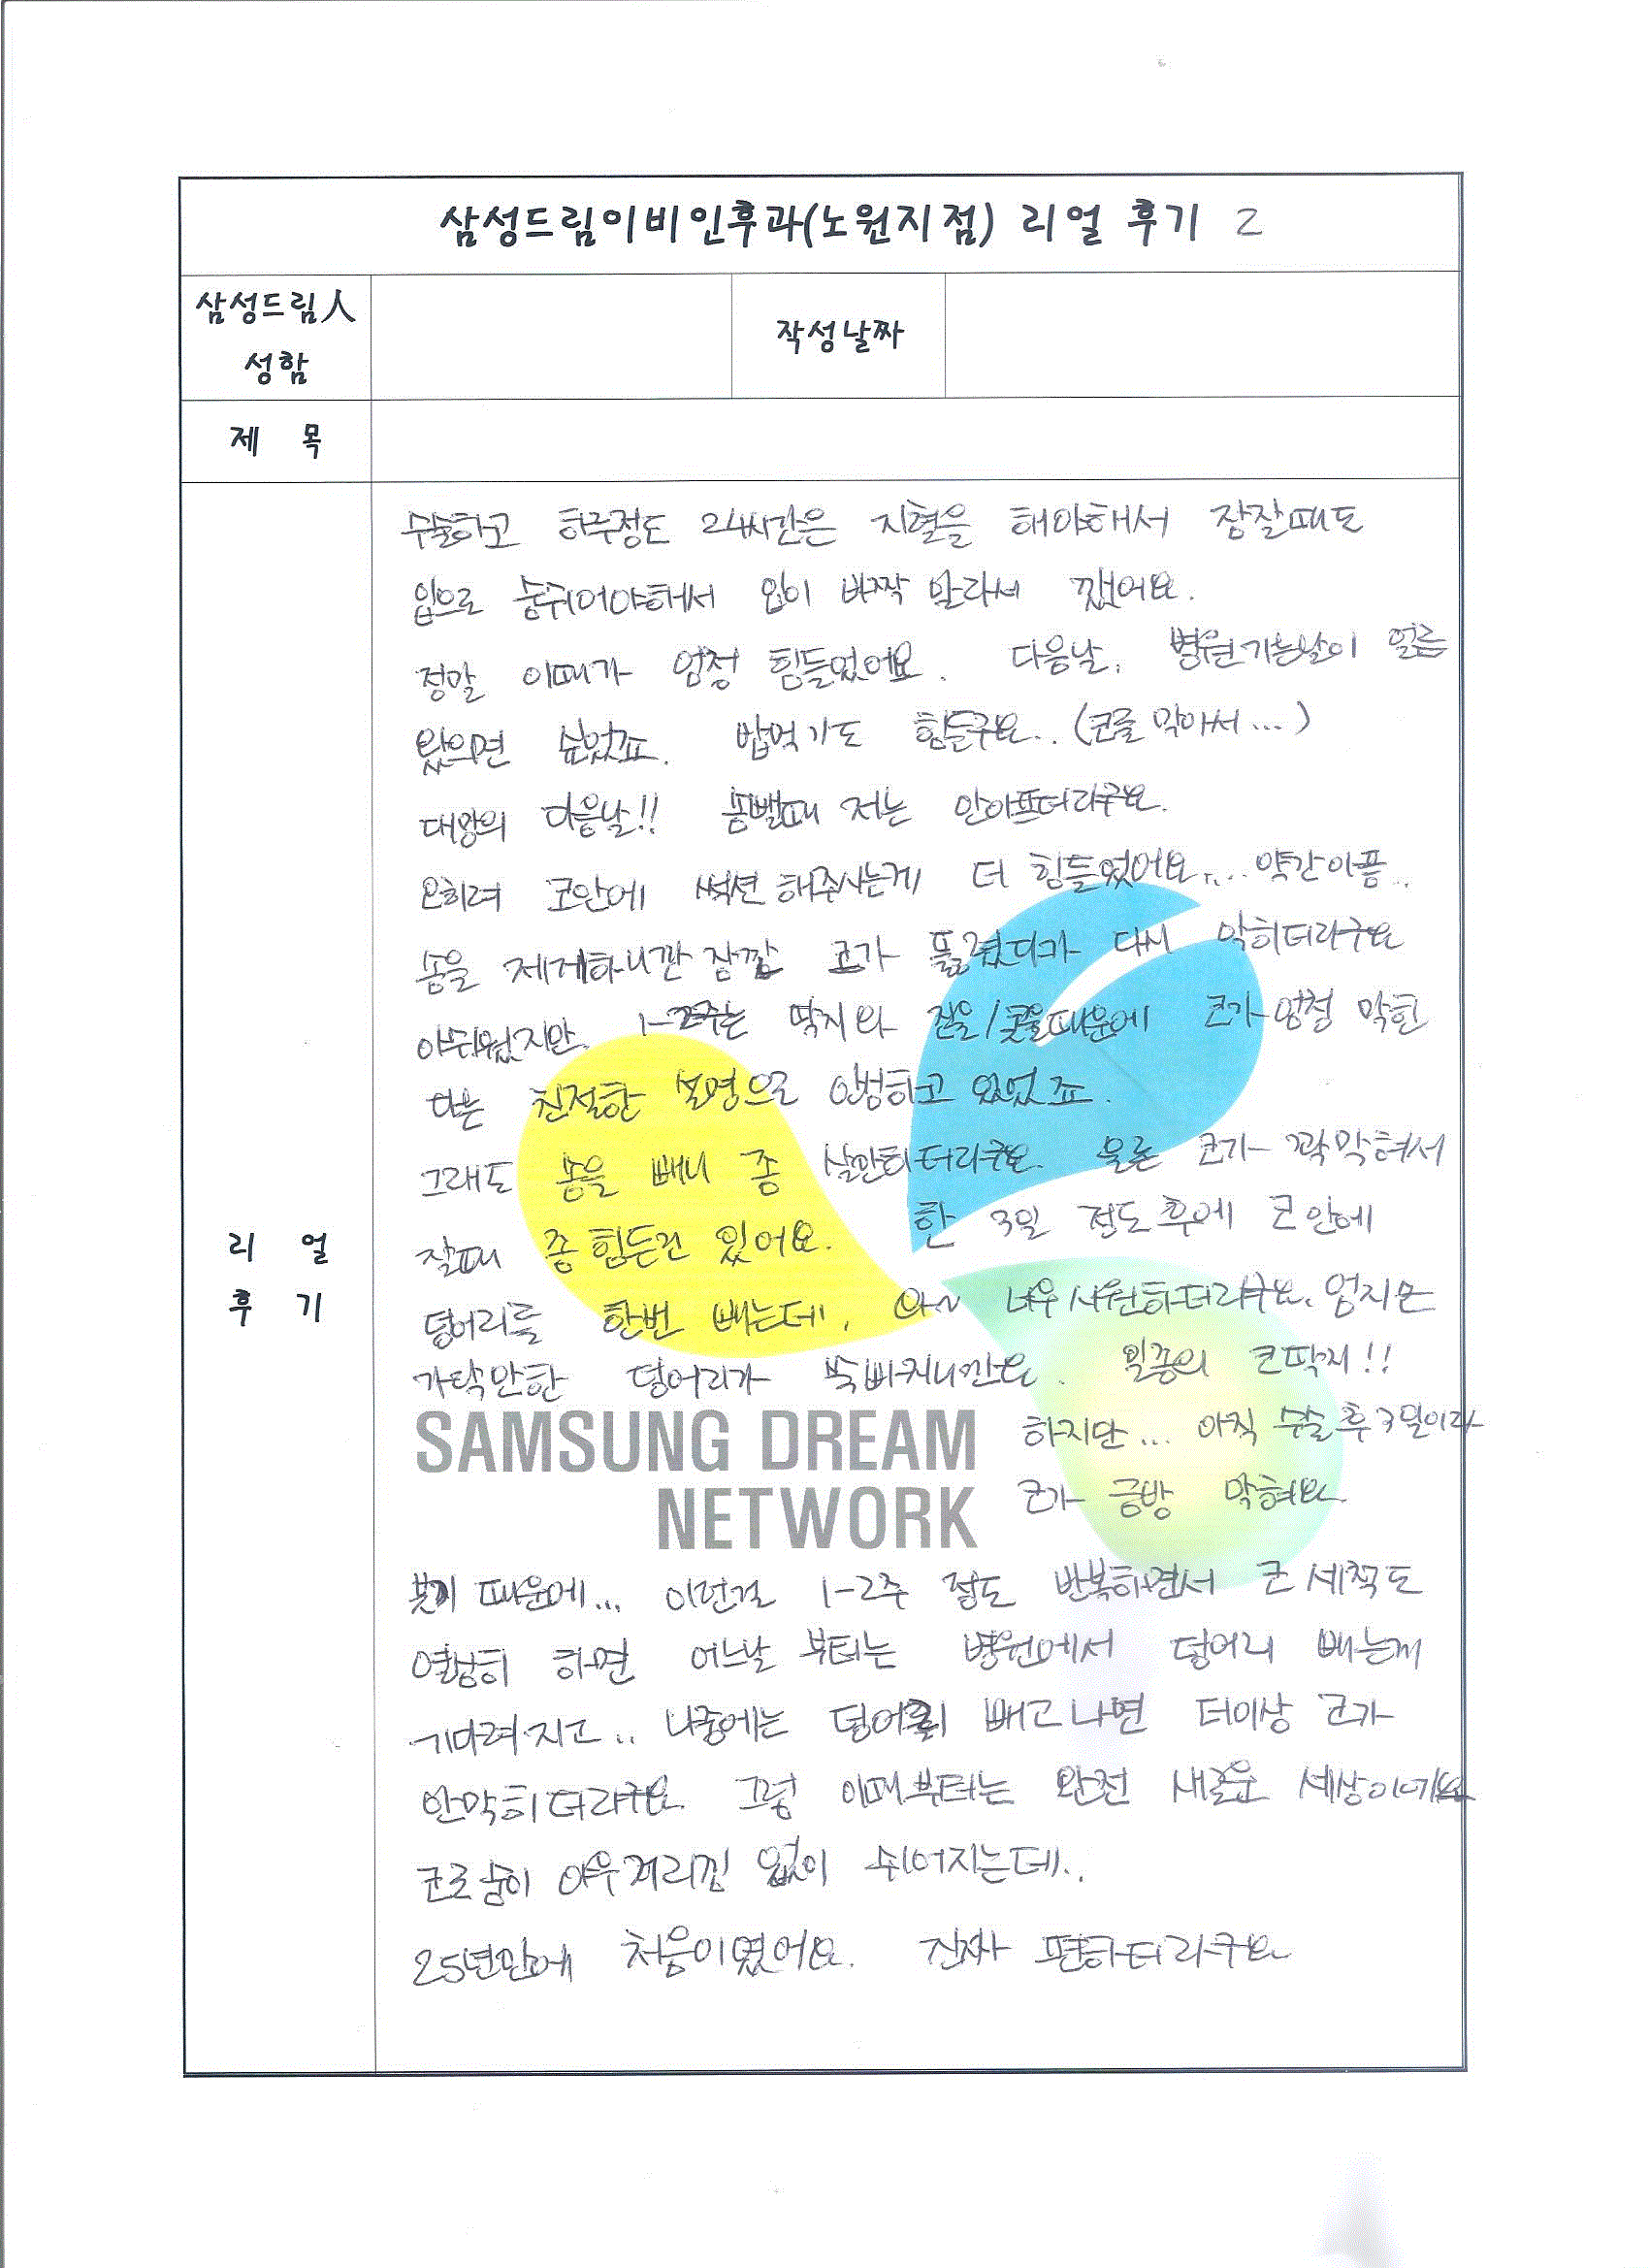 삼성드림이비인후과(노원지점) 리얼 후기 2
삼성드림人
성함
작성날짜
제 목
수술하고 하루정도 24시간은 지혈을 해야해서 잠잘때도
입으로 숨쉬어야해서 입이 바짝 말라서 깼어요.
정말 이때가 엄청 힘들었어요. 다음날, 병원가는날이 얼른
왔으면 싶었죠. 밥먹기도 힘들구요.. (코를 막아서...)
대망의 다음날!! 솜뺄때 저는 안아프더라구요.
오히려 코안에 썩션 해주시는게 더 힘들었어요... 약간아픔..
솜을 제게하니깐 잠깐 코가 뚤렸다가 다시 막히더라구요
아쉬웠지만. 1-2주는 딱지와 진물/콧물때문에 코가 엄청 막힌
다는 친절한 설명으로 안심하고 있었죠.
그래도 솜을 빼니 좀 살만하더라구요. 물론 코가 꽉막혀서
잘때 좀 힘든건 있어요. 한 3일 정도후에 코안에
덩어리를 한번 빼는데, 와~ 너무 시원하더라구요. 엄지손
가락만한 덩어리가 쑥빠지니깐요. 일종의 코딱지!!
SAMSUNG DREAM
NETWORK
하지만... 아직 수술후 3일이라
코가 금방 막혀요.
붓기 때문에... 이런걸 1-2주 정도 반복하면서 코 세척도
열심히 하면 어느날 부터는 병원에서 덩어리 빼는게
기다려지고.. 나중에는 덩어리 빼고나면 더이상 코가
안막히더라구요. 그럼 이때부터는 완전 새로운 세상이에요
코로숨이 아무거리낌 없이 쉬어지는데..
25년만에 처음이였어요. 진짜 편하더라구요
리 얼
후 기